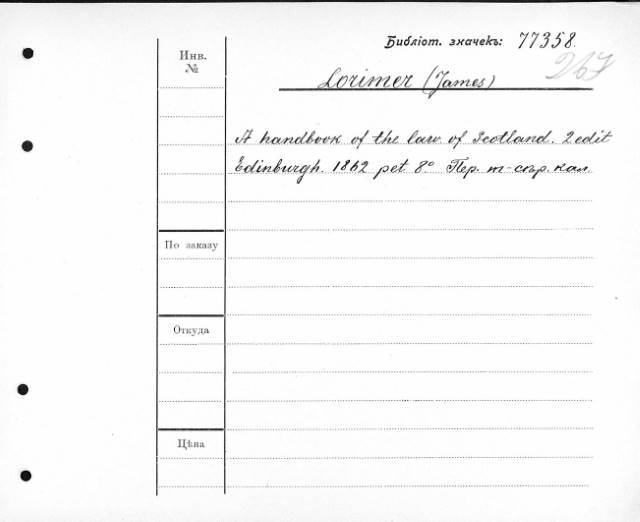 Библіот. значекъ: 77358.
267
Инв.
№
Lorimer (James)
A handbook of the law of Scotland. 2 edit
Edinburgh. 1862 pet 8° Пер. т-сѣр. кал.
По заказу
Откуда
Цѣна